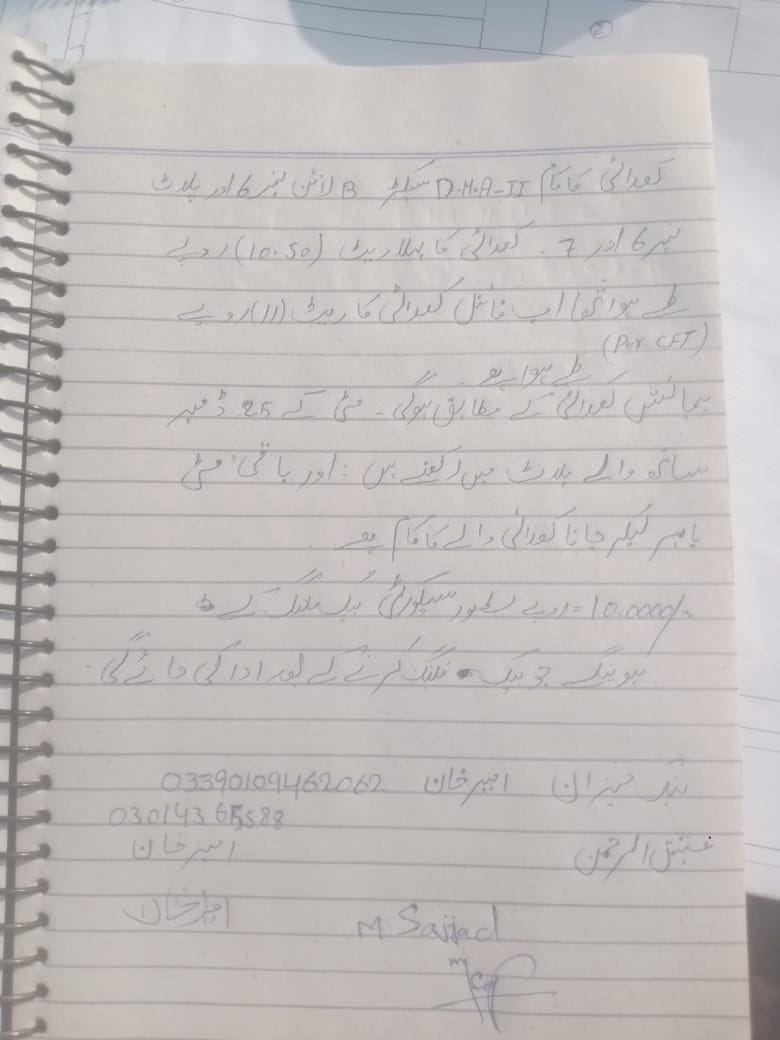 ②
کھدائی کا کام D.H.A-II سیکٹر B لائن نمبر 6 اور پلاٹ
نمبر 6 اور 7 ۔ کھدائی کا پہلا ریٹ (10.50) روپے
طے ہوا تھا اب فائنل کھدائی کا ریٹ (11) روپے
(Per CFT)
طے ہوا ہے ۔
پیمائش کھدائی کے مطابق ہوگی ۔ مٹی کے 25 ڈمپر
ساتھ والے پلاٹ میں رکھنے ہیں : اور باقی مٹی
باہر لیکر جانا کھدائی والے کا کام ہے
10.0000/= روپے بطور سیکورٹی بیک فلنگ کے
ہونگے جو بیک فلنگ کرنے کے بعد ادا کی جائے گی ۔
بنک میزان امیر خان 03390109462062
03014365588
عتیق الرحمن امیر خان
امیر خان
M. Sajjad